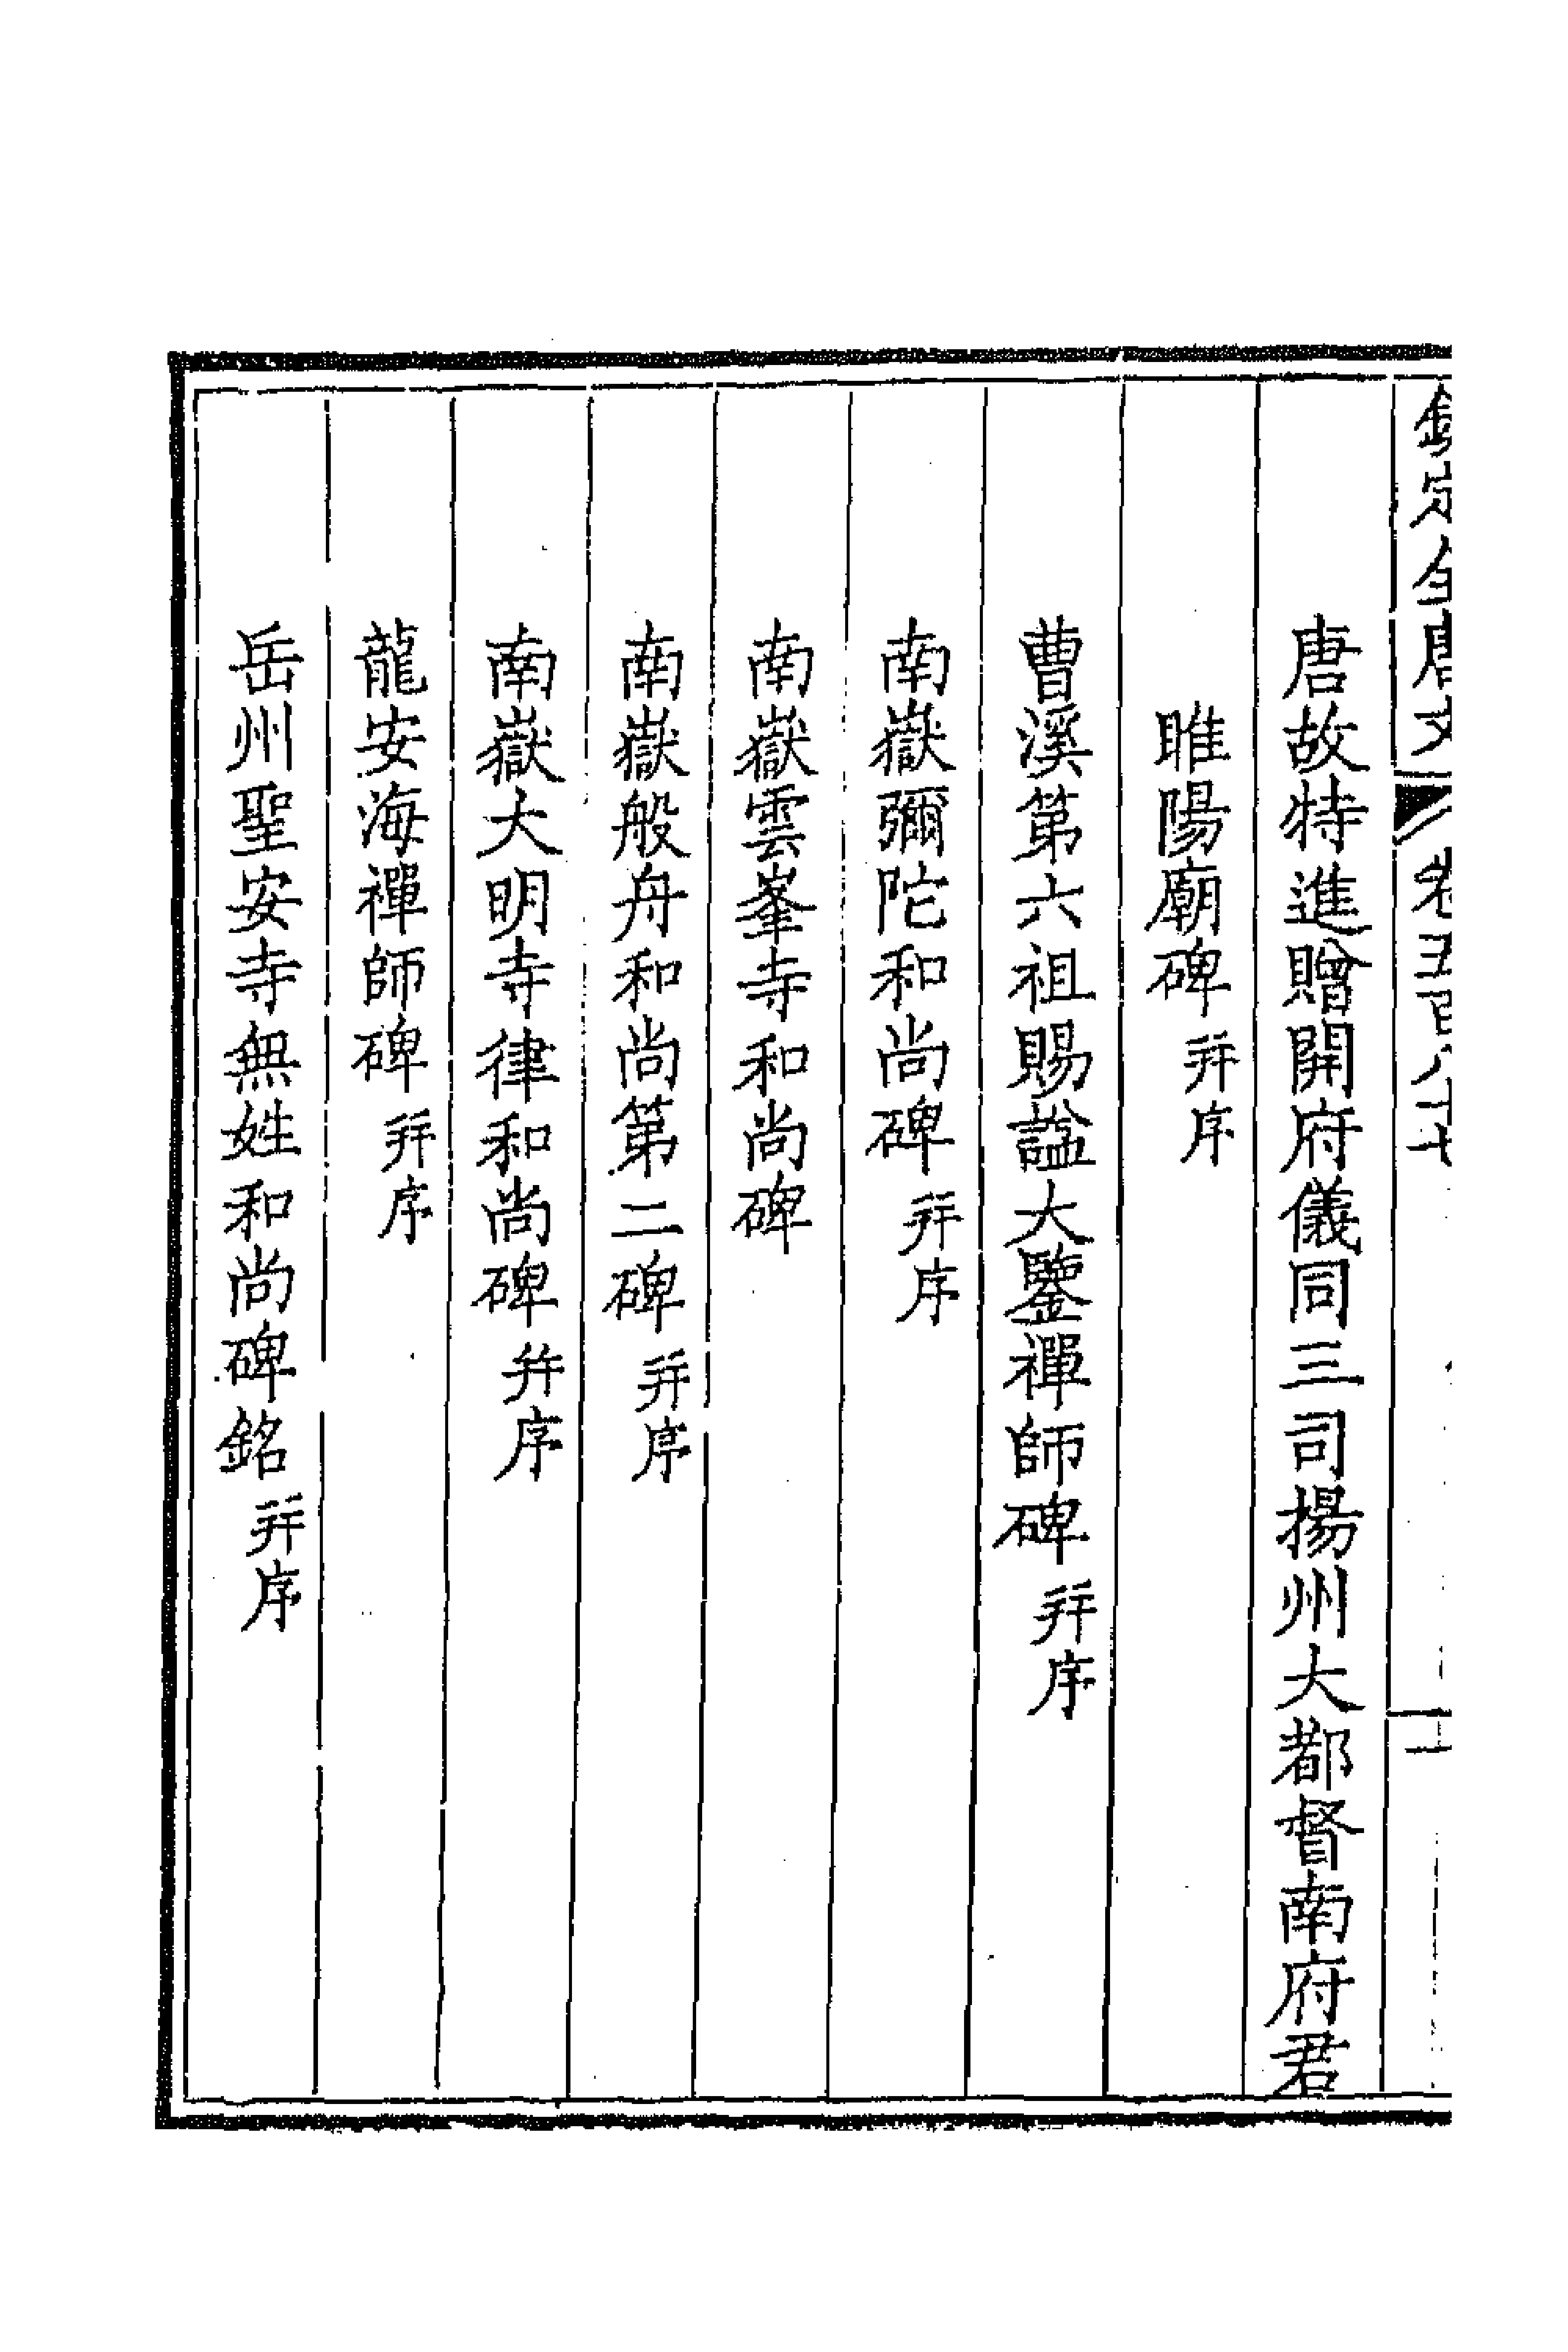 欽定全唐文 卷五百八十七
唐故特進贈開府儀同三司揚州大都督南府君
睢陽廟碑 并序
曹溪第六祖賜諡大鑒禪師碑 并序
南嶽彌陀和尚碑 并序
南嶽雲峯寺和尚碑
南嶽般舟和尚第二碑 并序
南嶽大明寺律和尚碑 并序
龍安海禪師碑 并序
岳州聖安寺無姓和尚碑銘 并序